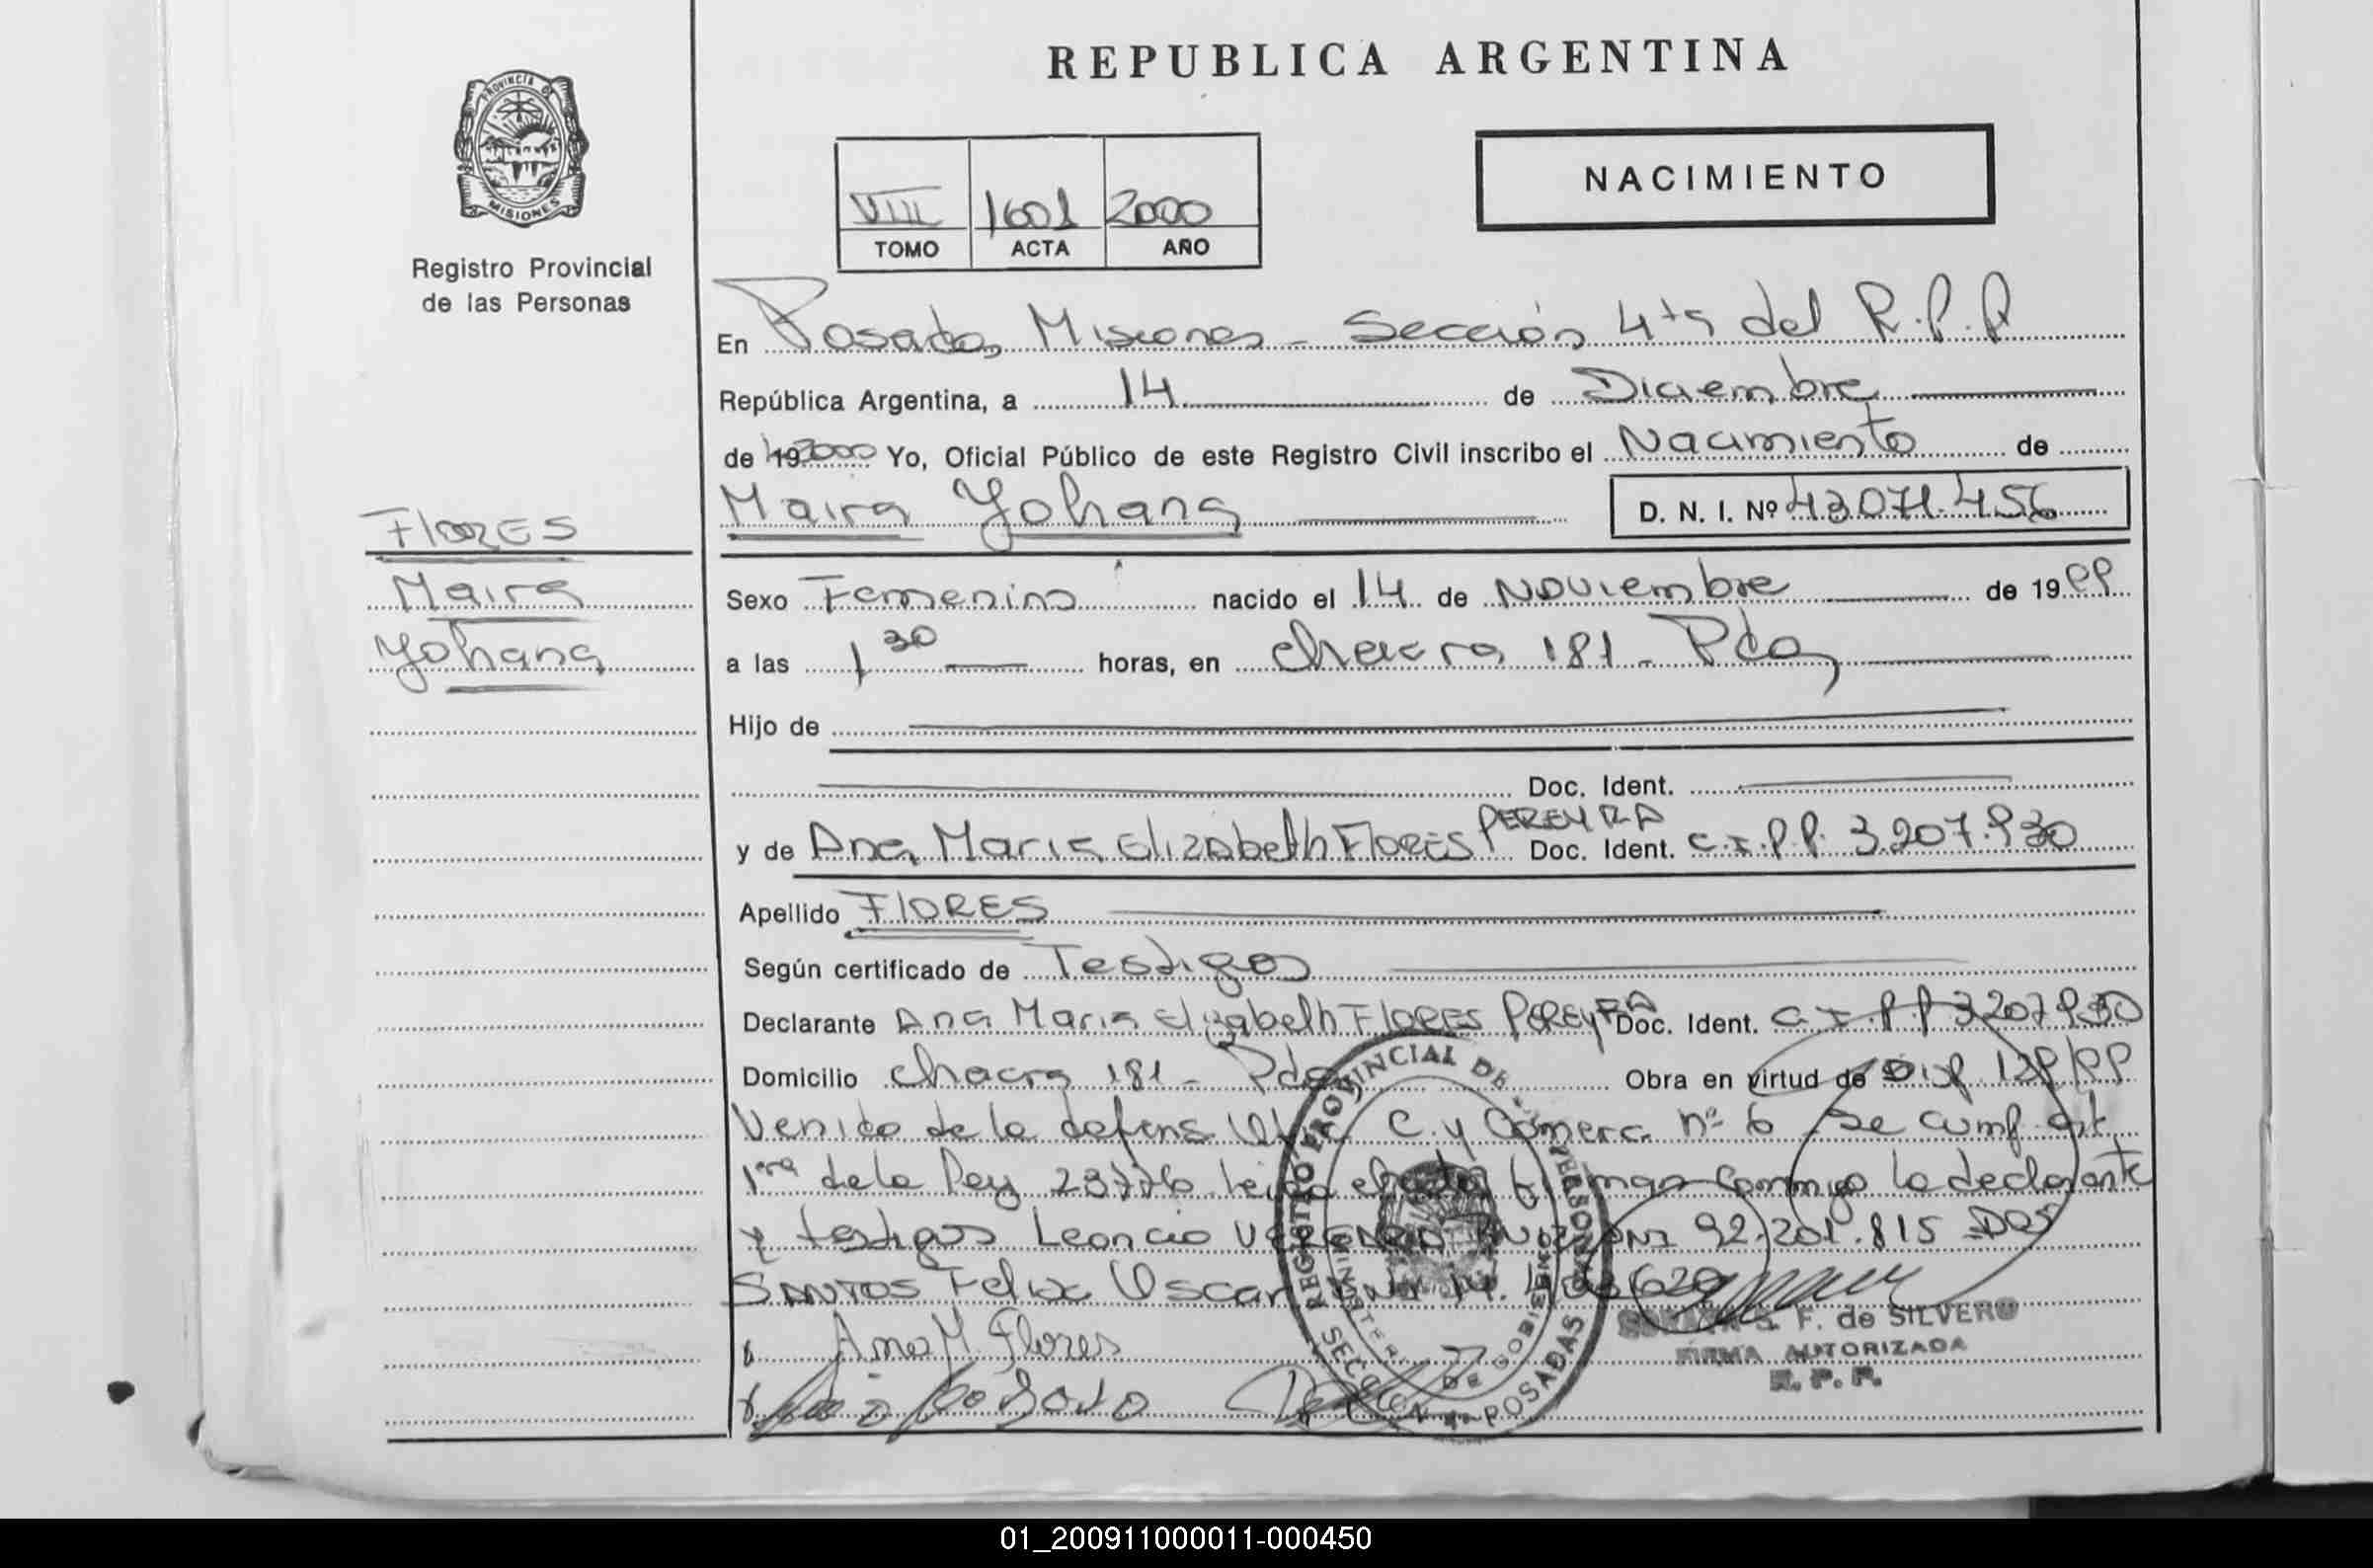 REPUBLICA ARGENTINA
PROVINCIA DE
MISIONES
Registro Provincial
de las Personas
NACIMIENTO
VIII 1601 2000
TOMO ACTA AÑO
En Posadas Misiones - Sección 4ta del R.P.P
República Argentina, a 14 de Diciembre
de 19 2000 Yo, Oficial Público de este Registro Civil inscribo el Nacimiento de
Maira Yohana D. N. I. Nº 43.071.456
FLORES
Maira
Yohana
Sexo Femenino nacido el 14 de Noviembre de 1999
a las 1 30 horas, en chacra 181 - Pdas
Hijo de
Doc. Ident.
y de Ana Maria Elizabeth FLORES PEREYRA Doc. Ident. C.I.P.P. 3.207.930
Apellido FLORES
Según certificado de Testigos
Declarante Ana Maria Elizabeth FLORES PEREYRA Doc. Ident. C.I.P.P 3207930
Domicilio chacra 181 - Pdas Obra en virtud de Disp 129/99
Venido de la defens C. y Comerc. nº 6 Se cumpl. art
1ra de la Ley 23776 Leida el acta firman conmigo la declarante
y testigos Leoncio DNI 92.201.815 DOS
SANTOS Felix Oscar DNI
Ana M Flores
REGISTRO PROVINCIAL DE LAS PERSONAS
MINISTERIO DE GOBIERNO
SECCION 4a POSADAS
S. F. de SILVERO
FIRMA AUTORIZADA
R. P. P.
01_200911000011-000450